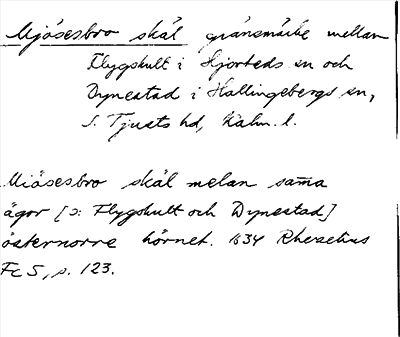 Mjösesbro skäl gränsmärke mellan
Flygskult i Hjorteds sn och
Dynestad i Hallingebergs sn,
S. Tjusts hd, Kalm. l.
Miösesbro skäl melan sama
ägor [ɔ: Flygskult och Dynestad]
östernorre hörnet. 1634 Rhezelius
Fc 5, p. 123.